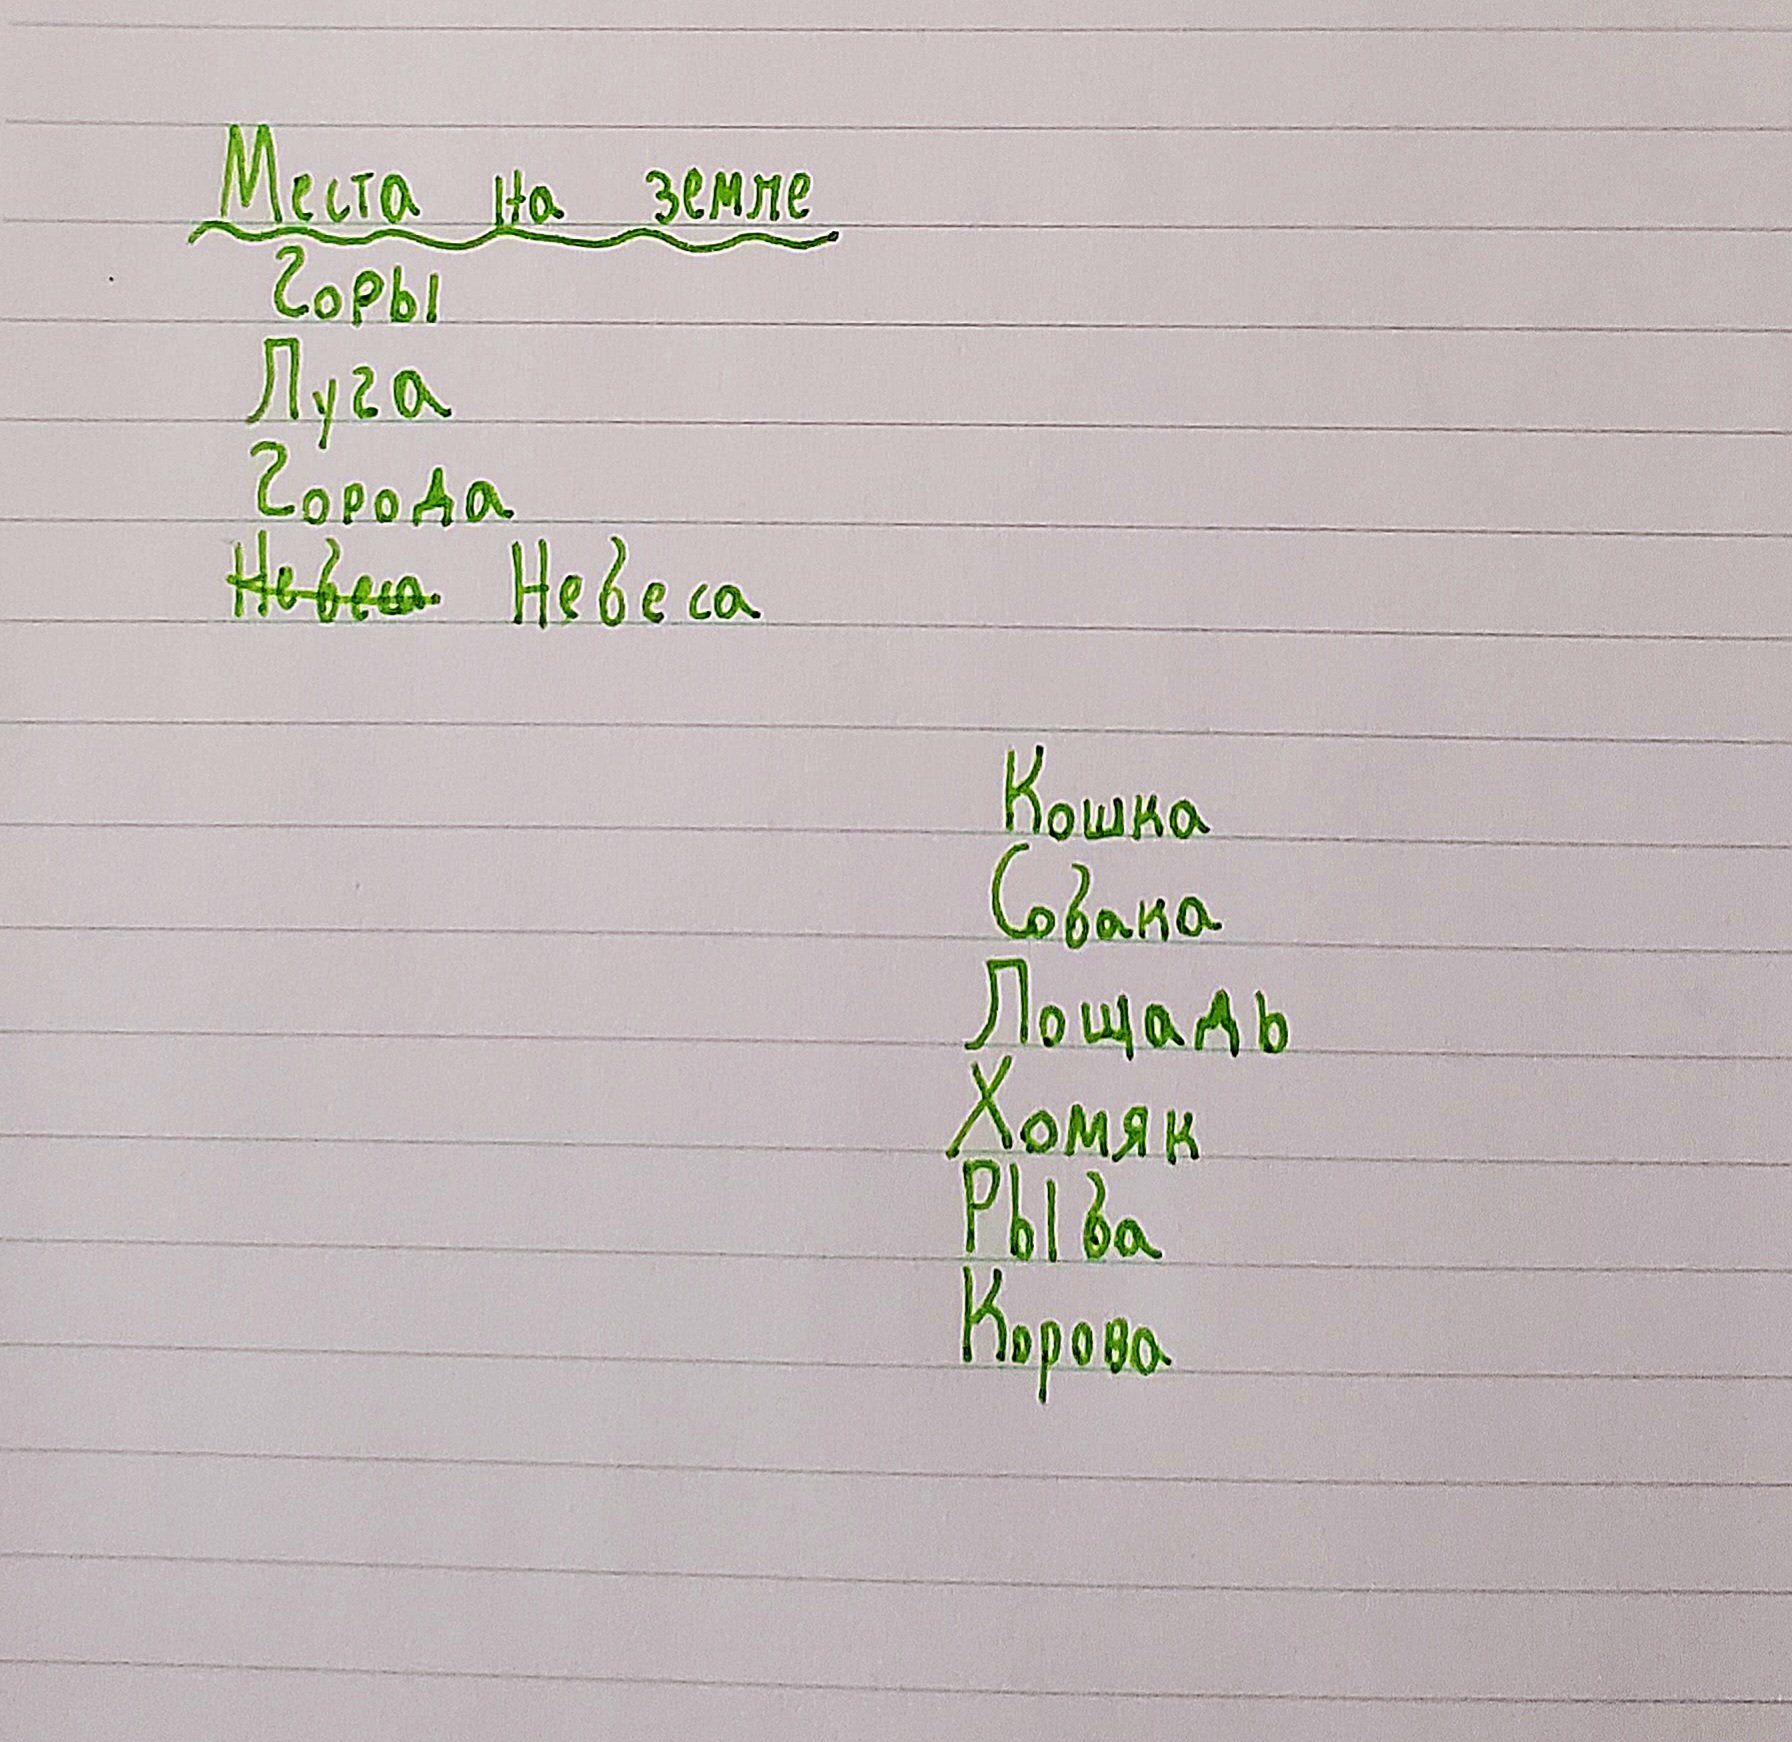 Места на земле
Горы
Луга
Города
Небеса Небеса
Кошка
Собака
Лощадь
Хомяк
Рыба
Корова